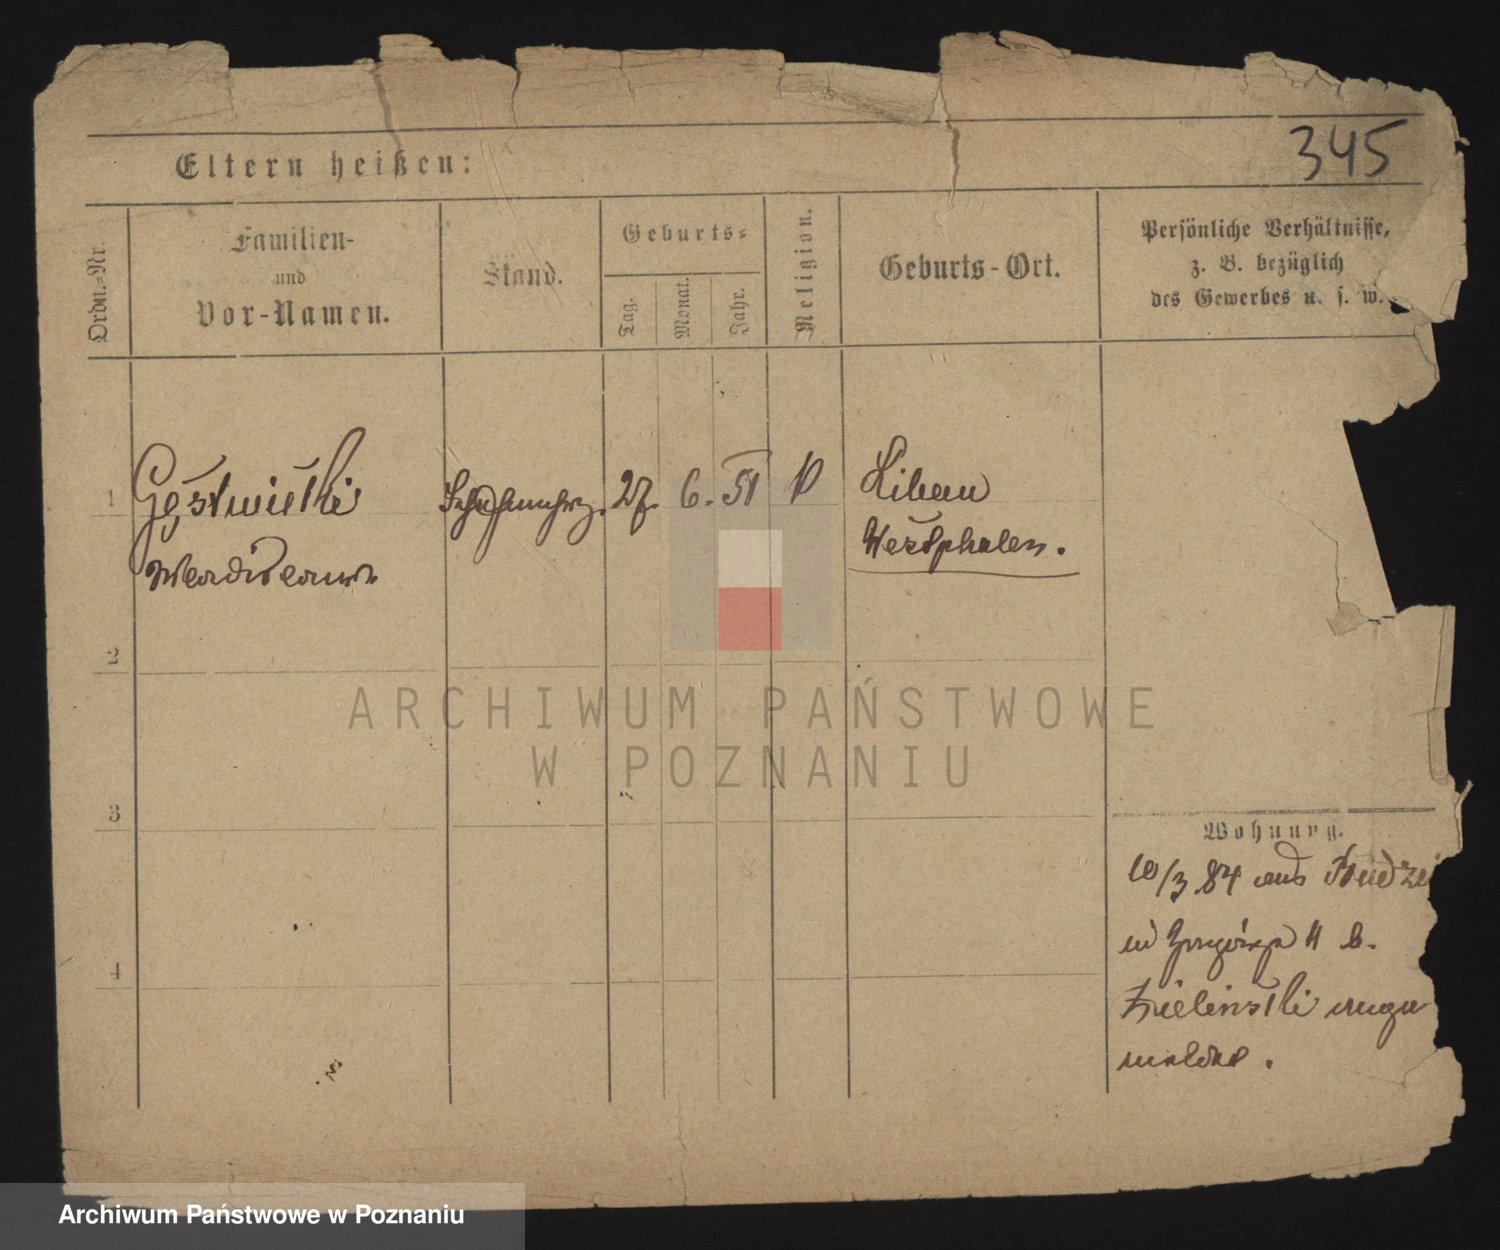 345
Eltern heißen:
Ordn.-Nr.
Familien-
und
Vor-Namen.
Stand.
Geburts-
Tag.
Monat.
Jahr.
Religion.
Geburts-Ort.
Persönliche Verhältnisse,
z. B. bezüglich
des Gewerbes u. s. w.
1
27. 6. 51
Libau
Westphalen.
2
ARCHIWUM PAŃSTWOWE
W POZNANIU
3
Wohnung.
10/3 84 aus
in 4 b.
4
Zielinski ange
meldet.
Archiwum Państwowe w Poznaniu